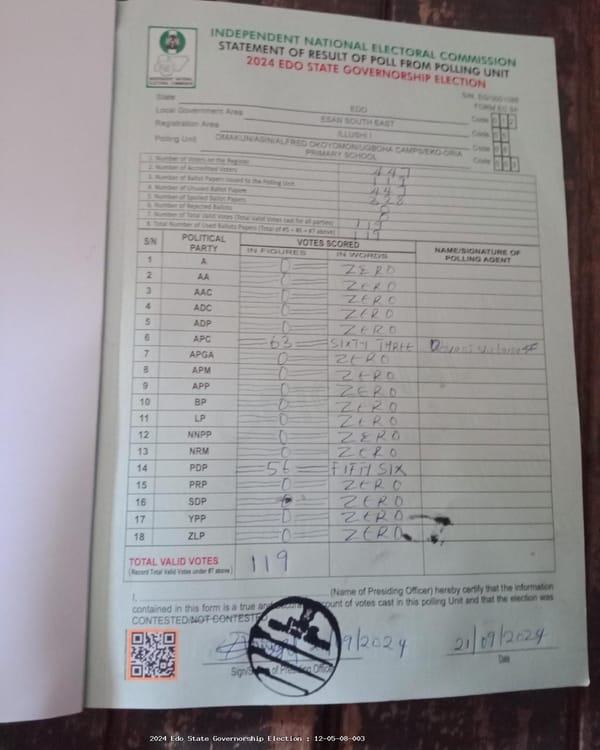 INDEPENDENT NATIONAL ELECTORAL COMMISSION
STATEMENT OF RESULT OF POLL FROM POLLING UNIT
2024 EDO STATE GOVERNORSHIP ELECTION
INDEPENDENT NATIONAL ELECTORAL COMMISSION
S/N
FORM EC 8A
State EDO
Local Government Area ESAN SOUTH EAST Code
Registration Area ILLUSHI I Code
Polling Unit OMAKUN/ASIN/ALFRED OKOYOMON/UGBOHA CAMPS/EKO-ORIA Code
PRIMARY SCHOOL Code
1. Number of Voters on the Register 447
2. Number of Accredited Voters 119
3. Number of Ballot Papers Issued to the Polling Unit 447
4. Number of Unused Ballot Papers 328
5. Number of Spoiled Ballot Papers
6. Number of Rejected Ballots
7. Number of Total Valid Votes (Total Valid Votes cast for all parties) 119
8. Total Number of Used Ballots Papers (Total of #5 + #6 + #7 above) 119
S/N POLITICAL PARTY VOTES SCORED NAME/SIGNATURE OF POLLING AGENT
IN FIGURES IN WORDS
1 A 0 ZERO
2 AA 0 ZERO
3 AAC 0 ZERO
4 ADC 0 ZERO
5 ADP 0 ZERO
6 APC 63 SIXTY THREE
7 APGA 0 ZERO
8 APM 0 ZERO
9 APP 0 ZERO
10 BP 0 ZERO
11 LP 0 ZERO
12 NNPP 0 ZERO
13 NRM 0 ZERO
14 PDP 56 FIFTY SIX
15 PRP 0 ZERO
16 SDP ZERO
17 YPP 0 ZERO
18 ZLP 0 ZERO
TOTAL VALID VOTES 119
(Record Total Valid Votes under #7 above)
I, (Name of Presiding Officer) hereby certify that the information
contained in this form is a true and account of votes cast in this polling Unit and that the election was
CONTESTED/NOT CONTESTED
9/2024 21/09/2024
of Presiding Officer Date
2024 Edo State Governorship Election : 12-05-08-003